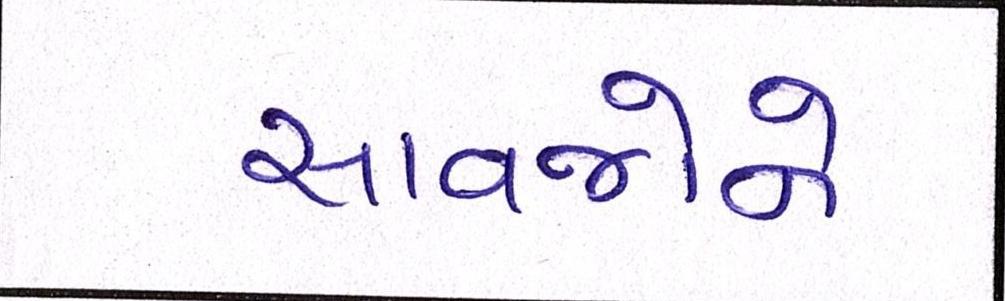 સાવજોને